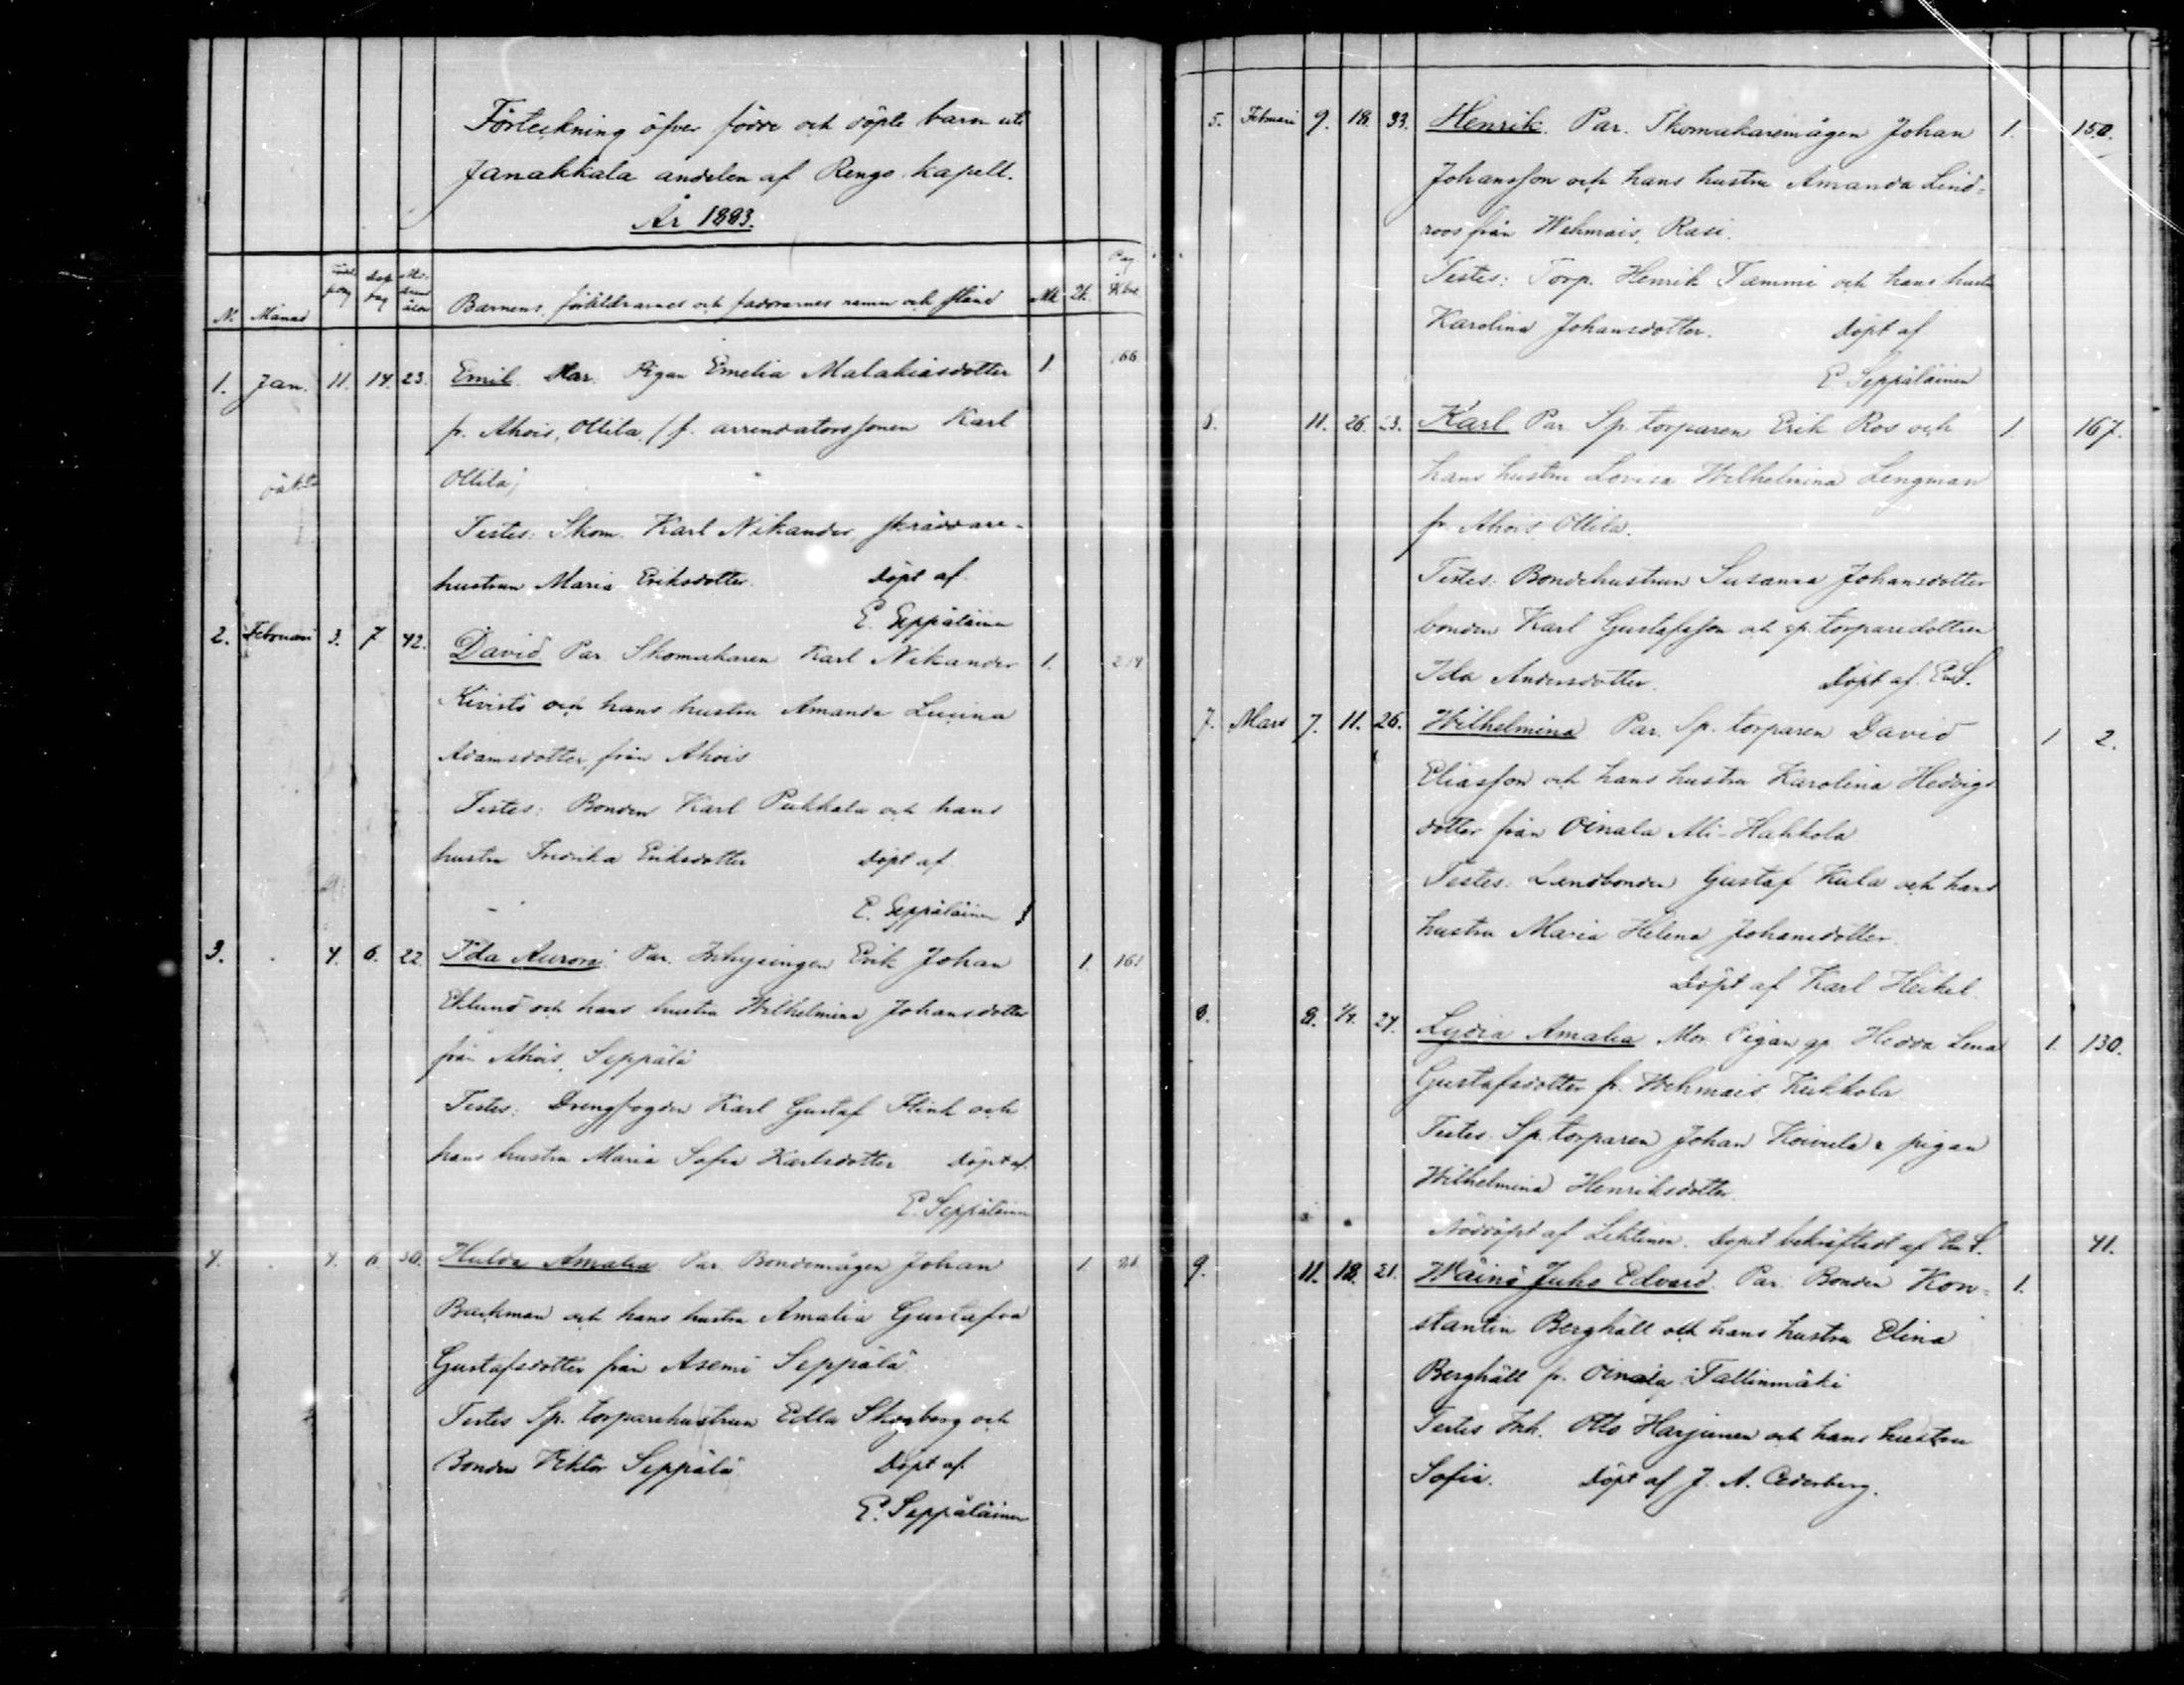 Förteckning öfver födde och döpte barn uti
Janakkala andelen af Rengo kapell.
År 1883.
N. Månad Födelsedag Dopdag Modrens ålder Barnens, föräldrarnes och faddrarnes namn och stånd Mk Qk. Pag. i K.bok
1. Jan. 11. 14. 23. Emil. Mar. Pigan Emelia Malakiasdotter 1. 66
fr. Ahois, Ollila, (f. arrendatorssonen Karl
oäkta Ollila)
Testes: Skom. Karl Nikander skräddare-
hustrun Maria Eriksdotter. Döpt af
E. Seppäläinen
2. Februari 3. 7 42. David Par. Skomakaren Karl Nikander 1.
Kivistö och hans hustru Amanda Lucina
Adamsdotter, från Ahois
Testes: Bonden Karl Pukkala och hans
hustru Fredrika Eriksdotter Döpt af
E. Seppäläinen
3. 4. 6. 22 Ida Aurora. Par. Inhysingen Erik Johan 1. 161
Eklund och hans hustru Wilhelmina Johansdotter
från Ahois, Seppälä
Testes: Drengfogden Karl Gustaf Flink och
hans hustru Maria Sofia Karlsdotter Döpt af
E. Seppäläinen
4. 4. 6 30. Hulda Amalia Par. Bondemågen Johan 1.
Backman och hans hustru Amalia Gustafva
Gustafsdotter från Asemi Seppälä
Testes Sp. torparehustrun Edla Skogberg och
Bonden Viktor Seppälä Döpt af
E. Seppäläinen
5. Februari 9. 18. 33. Henrik. Par. Skomakaremågen Johan 1. 150.
Johansson och hans hustru Amanda Lind-
roos från Wehmais, Rasi.
Testes: Torp. Henrik Tammi och hans hustru
Karolina Johansdotter. Döpt af
E. Seppäläinen
6. 11. 26. 23. Karl Par. Sp. torparen Erik Ros och 1. 167.
hans hustru Lovisa Wilhelmina Lengman
fr. Ahois Ollila.
Testes: Bondehustrun Susanna Johansdotter
bonden Karl Gustafsson och sp. torparedottren
Ida Andersdotter. Döpt af E. S.
7. Mars 7. 11. 26. Wilhelmina Par. Sp. torparen David 1 2.
Eliasson och hans hustru Karolina Hedvigs
dotter från Oinala Ali-Hakkola
Testes: Landbonden Gustaf Kula och hans
hustru Maria Helena Johansdotter
Döpt af Karl Heikel.
8. 8. 1/4. 27. Lydia Amalia Mor. Pigan gp. Hedda Lena 1. 130.
Gustafsdotter fr. Wehmais Kukkola
Testes: Sp. torparen Johan Koivula & pigan
Wilhelmina Henriksdotter
Nöddöpt af Lehtinen. Dopet bekräftadt af E. S. 41.
9. 11. 18. 21. Wäinö Juho Edvard. Par. Bonden Kon- 1.
stantin Berghäll och hans hustru Elina
Berghäll fr. Oinala Tallinmäki
Testes Inh. Otto Harjunen och hans hustru
Sofia. Döpt af J. A. Cederberg.